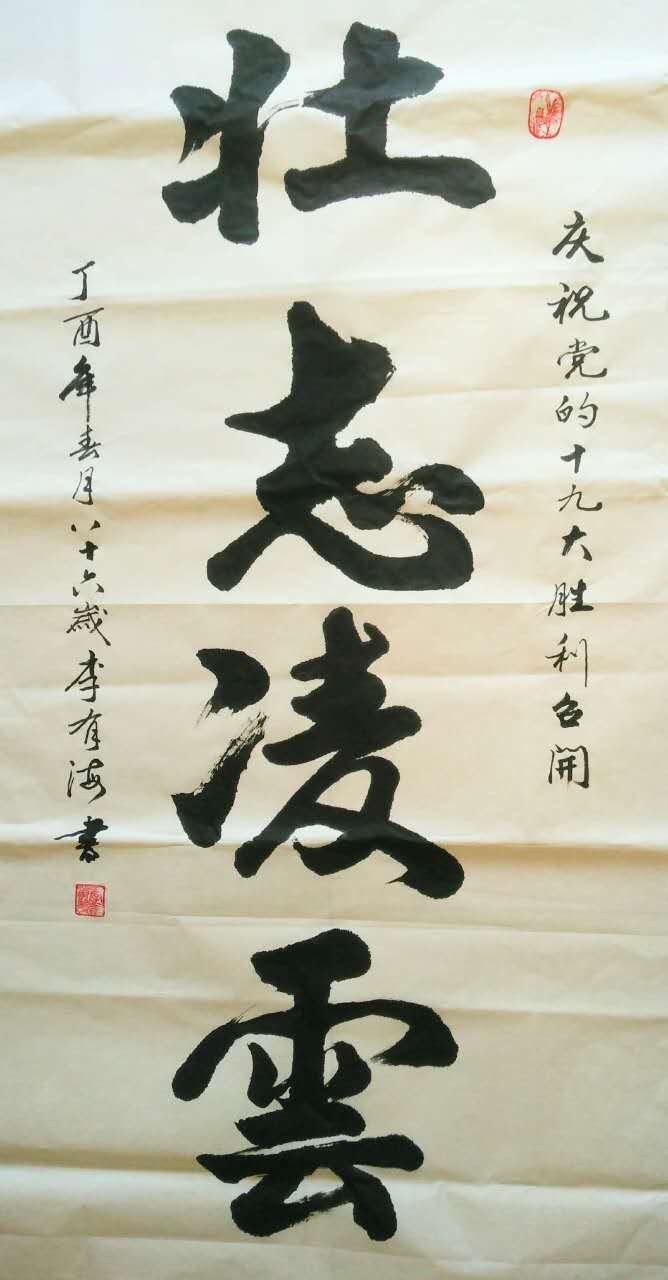 庆祝党的十九大胜利召開
壮志凌雲
丁酉年春月八十六歲李有海書